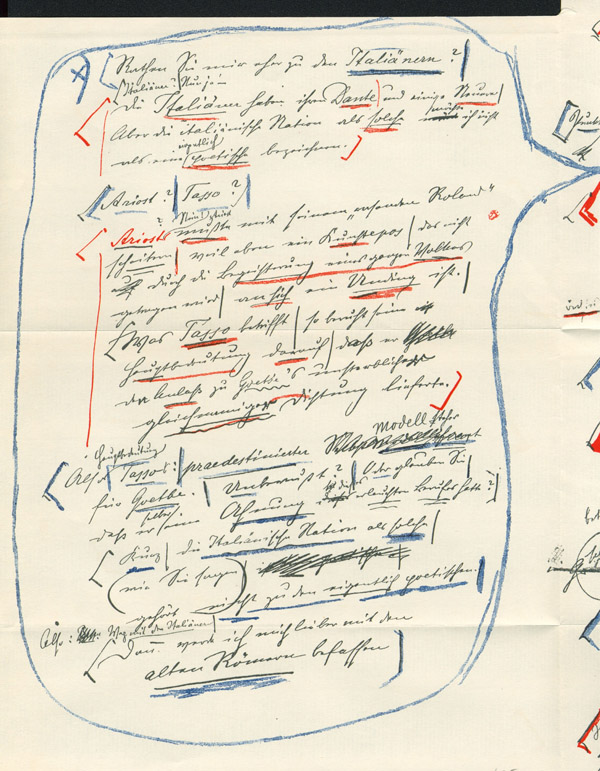 Rathen Sie mir eher zu den Italiänern?
Italiäner? Nun ja
Die Italiäner haben ihren Dante und einige Neuere
Aber die italiänische Nation als solche möchte ich nicht
als eine eigentlich poetische bezeichnen.
Ariost? Tasso?
Ariosto mußte mit seinem „rasenden Roland“
scheitern weil eben ein Kunstepos das nicht
durch die Begeisterung eines ganzen Volkes
getragen wird an sich ein Unding ist.
Was Tasso betrifft so beruht seine
Hauptbedeutung darauf daß er
den Anlaß zu Goethe's unsterblicher
gleichnamiger Dichtung lieferte.
Hauptbedeutung Modell
Also Tassos: praedestinirter
für Goethe. Unbewußt? Oder glauben Sie
daß er selbst eine Ahnung dieses erlauchten Berufes hatte?
Kurz die Italiänische Nation als solche
wie Sie sagen
gehört nicht zu den eigentlich poetischen.
Also: Weg mit den Italiänern
Dann werde ich mich lieber mit den
alten Römern befassen